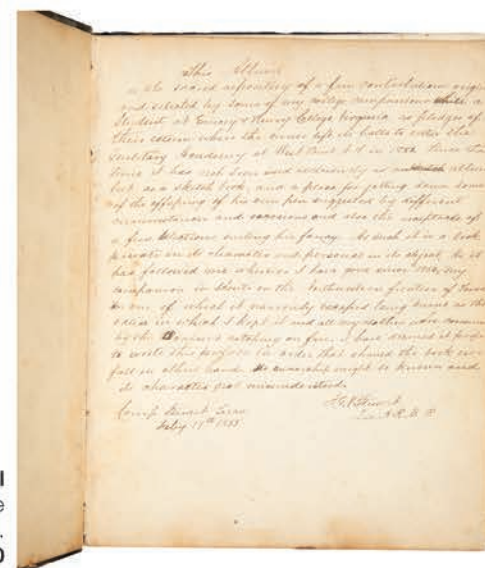 This Album
is the sacred repository of a few contributions origin
and selected by some of my college companions while a
Student at Emory & Henry College Virginia as pledges of
their esteem when the owner left its halls to enter the
Military Academy at West Point N.Y. in 1850. Since that
time it has not been used exclusively as an album
but as a sketch book, and a place for jotting down some
of the offspring of his own pen suggested by different
circumstances and occasions and also the receptacle of
a few selections suiting his fancy. As such it is a book
private in its character and personal in its object. As it
has followed me wherever I have gone since 1850, my
companion in tents on the Northwestern frontier of Texas
in one of which it narrowly escaped being burnt as the
valise in which I kept it and all my clothes were consumed
by the catching on fire, I have deemed it proper
to write this preface in order that should the book ever
fall in others hands its ownership might be known and
its character not misunderstood.
J.E.B. Stuart
Camp Texas
Feb'y 17th 1855